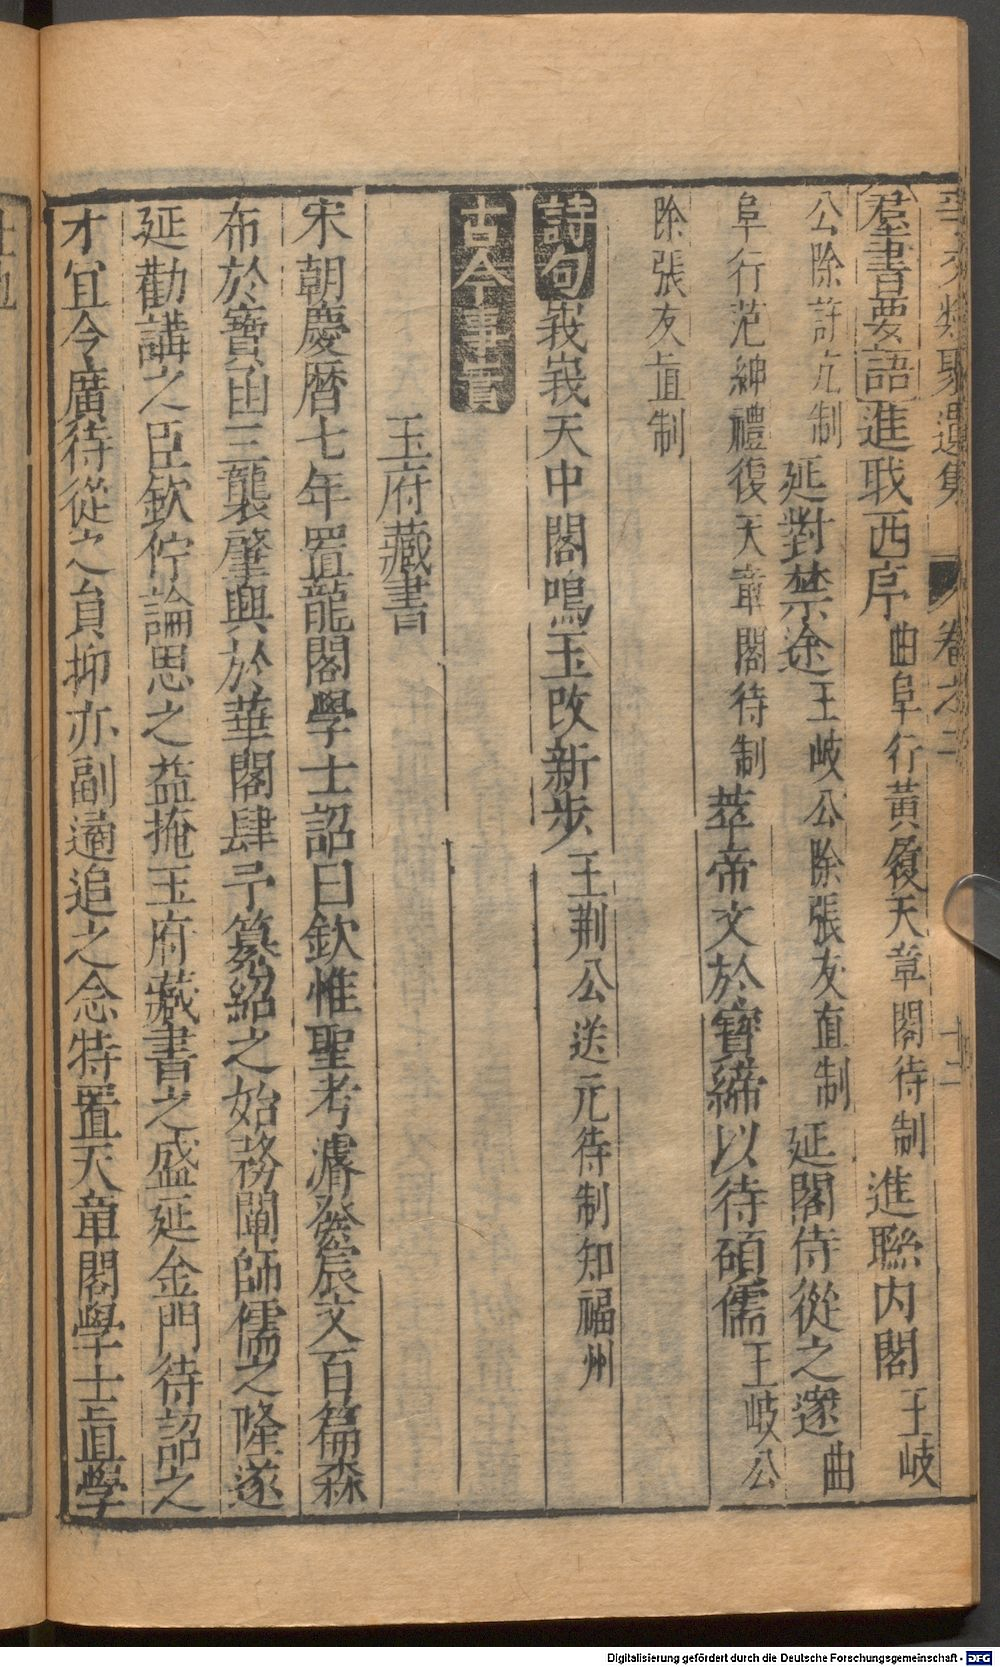 事文類聚遺集 卷之二 十二
羣書要語進聀西序曲阜行黃履天章閣待制進聮内閣王岐
公除許亢制延對禁途王岐公除張友直制延閣侍從之邃曲
阜行范紳禮復天章閣待制萃帝文於寶締以待碩儒王岐公
除張友直制
詩句峩峩天中閣鳴玉改新步王荆公送元待制知福州
古今事實
玉府藏書
宋朝慶曆七年置龍閣學士詔曰欽惟聖考濬發宸文百篇森
布於寶函三襲肇興於華閣肆予纂紹之始務闡師儒之隆遂
延勸講之臣欽佇論思之益掩玉府藏書之盛延金門待詔之
才宜今廣待從之員抑亦副遹追之念特置天章閣學士直學
Digitalisierung gefördert durch die Deutsche Forschungsgemeinschaft - DFG